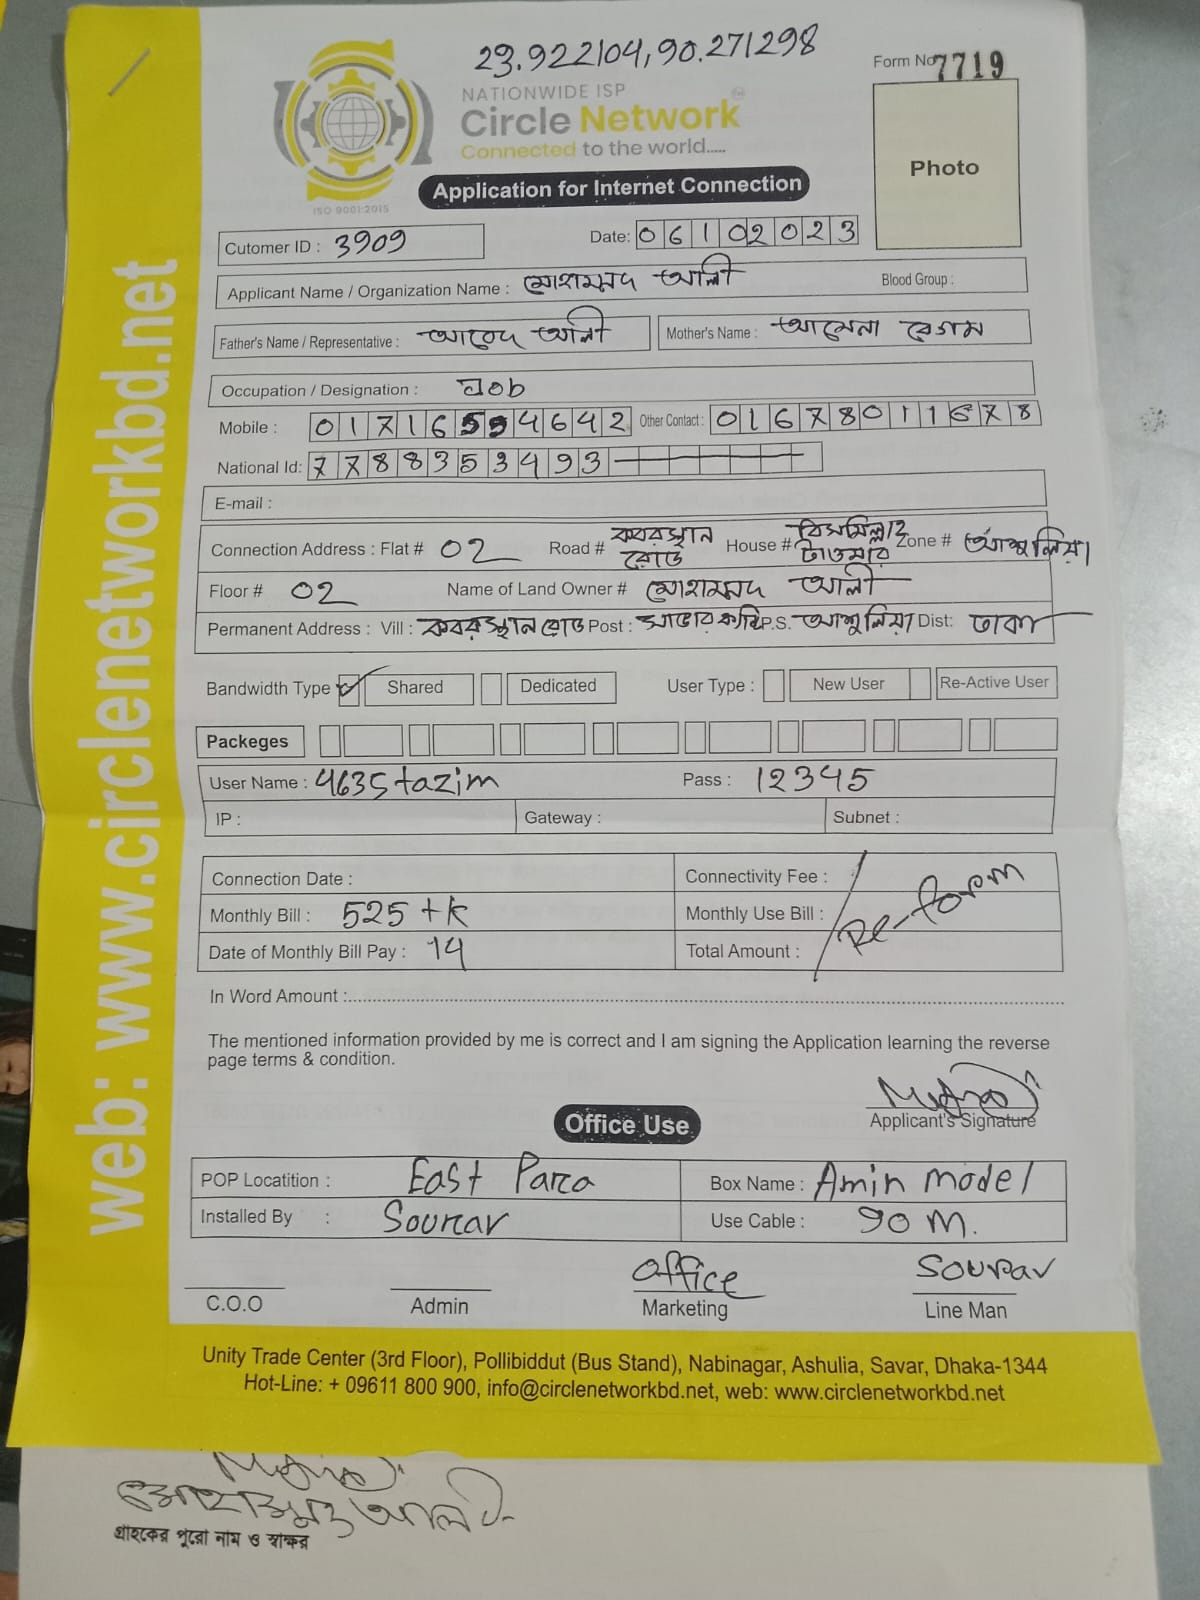 23.922104, 90.271298
Form No 7719
NATIONWIDE ISP
Circle Network
Connected to the world.....
ISO 9001:2015
Photo
Application for Internet Connection
Cutomer ID : 3909
Date: 06102023
Applicant Name / Organization Name : মোহাম্মদ আলী Blood Group :
Father's Name / Representative : আবেদ আলী Mother's Name : আমেনা বেগম
Occupation / Designation : Job
Mobile : 01716594642 Other Contact : 01678011678
National Id: 7788353493
E-mail :
Connection Address : Flat # 02 Road # কবরস্থান রোড House # বিসমিল্লাহ টাওয়ার Zone # আশুলিয়া
Floor # 02 Name of Land Owner # মোহাম্মদ আলী
Permanent Address : Vill : কবরস্থান রোড Post : সাভার ক্যান্ট P.S. আশুলিয়া Dist: ঢাকা
Bandwidth Type Shared Dedicated User Type : New User Re-Active User
Packeges
User Name : 4635tazim Pass : 12345
IP : Gateway : Subnet :
Connection Date : Connectivity Fee :
Monthly Bill : 525 tk Monthly Use Bill : Re-form
Date of Monthly Bill Pay : 14 Total Amount :
In Word Amount :
The mentioned information provided by me is correct and I am signing the Application learning the reverse
page terms & condition.
Applicant's Signature
Office Use
POP Locatition : East Para Box Name : Amin model
Installed By : Sourav Use Cable : 90 M.
Office Sourav
C.O.O Admin Marketing Line Man
Unity Trade Center (3rd Floor), Pollibiddut (Bus Stand), Nabinagar, Ashulia, Savar, Dhaka-1344
Hot-Line: + 09611 800 900, info@circlenetworkbd.net, web: www.circlenetworkbd.net
web: www.circlenetworkbd.net
মোহাম্মদ আলী
গ্রাহকের পুরো নাম ও স্বাক্ষর